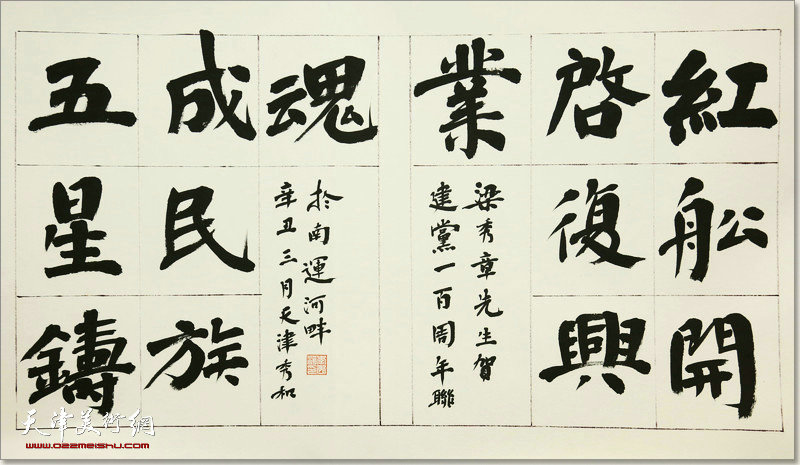 紅舩開
啓復興
業
梁秀章先生賀
建黨一百周年聯
五星鑄
成民族
魂
辛丑三月天津秀和
於南運河畔
天津美術網
www.022meishu.com